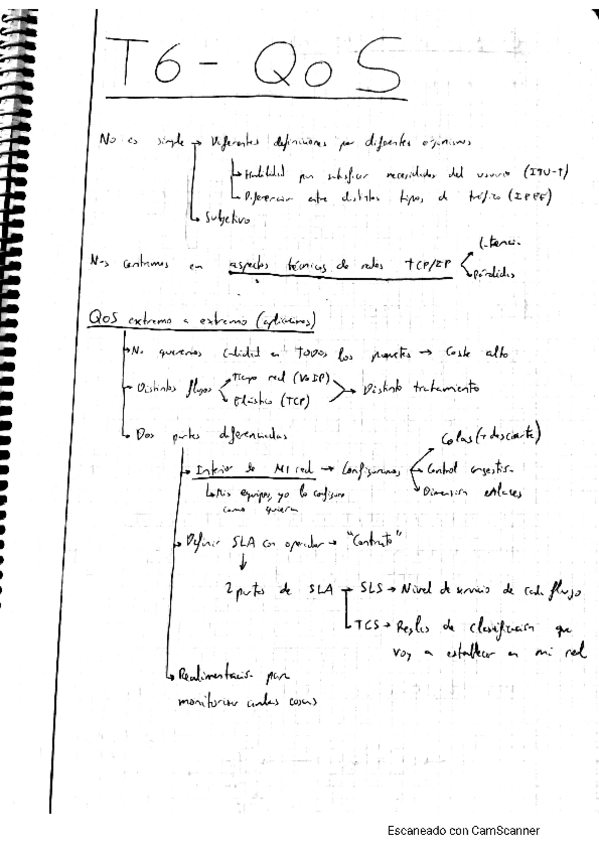 T6 - QoS
No es simple → Diferentes definiciones por diferentes organismos
↳ Habilidad para satisfacer necesidades del usuario (ITU-T)
↳ Diferenciar entre distintos tipos de tráfico (IEEE)
↳ Subjetivo
Latencia
Nos centramos en aspectos técnicos de redes TCP/IP
Pérdidas
QoS extremo a extremo (aplicaciones)
↳ No queremos calidad en TODOS los paquetes → Coste alto
Tiempo real (VoIP)
→ Distintos flujos
→ Distinto tratamiento
Elástico (TCP)
↳ Dos partes diferenciadas
Colas (+ descarte)
↳ Interior de MI red → Configuramos → Control congestión
↳ Mis equipos, yo lo configuro
→ Dimensión enlaces
como quiera
↳ Definir SLA con operador → "Contrato"
2 partes de SLA → SLS → Nivel de servicio de cada flujo
↳ TCS → Reglas de clasificación que
voy a establecer en mi red
↳ Realimentación para
monitorizar ambas cosas
Escaneado con CamScanner